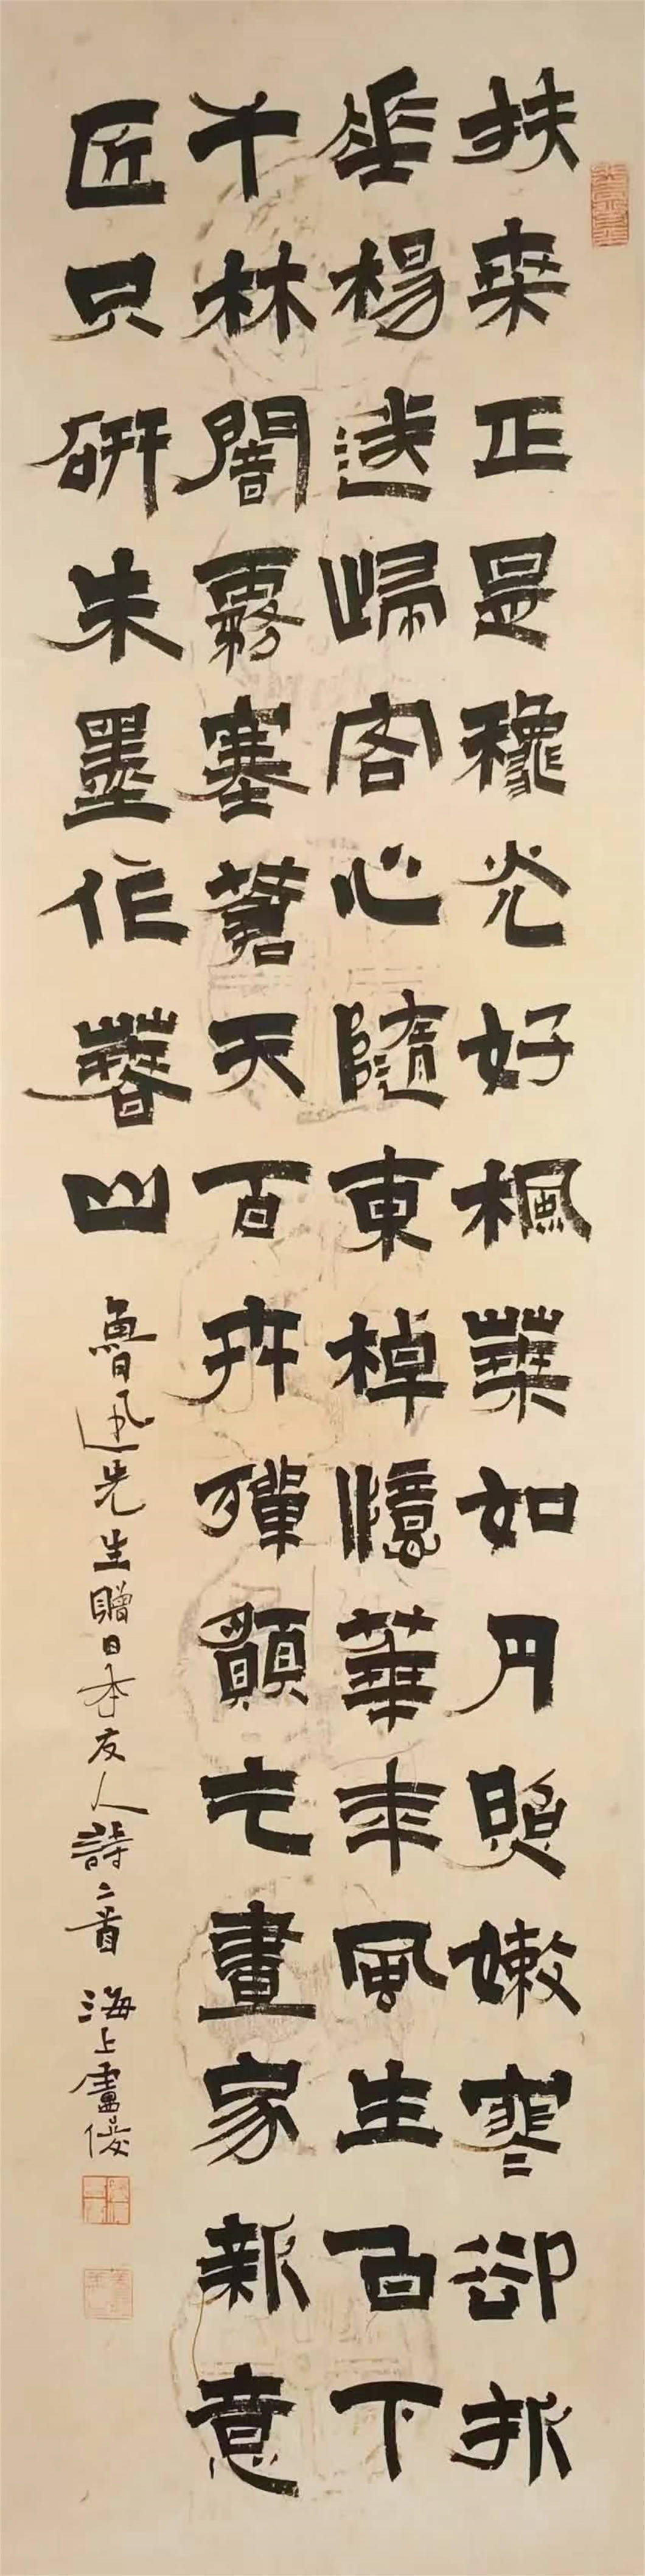 扶桒正是穐光好楓葉如丹照嫩寒卻折
垂楊送歸客心隨東棹憶華年風生白下
千林闇霧塞蒼天百卉殫願乞畫家新意
匠只研朱墨作春山
魯迅先生贈日本友人詩二首 海上